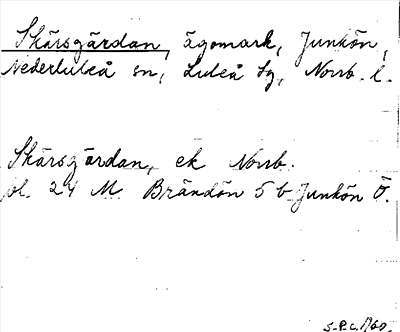 Skärsgårdan, ägomark, Junkön,
Nederluleå sn, Luleå tg, Norrb. l.
Skärsgårdan, ek Norrb.
bl. 24 M Brändön 5 b Junkön Ö.
S.P.C. 1960.